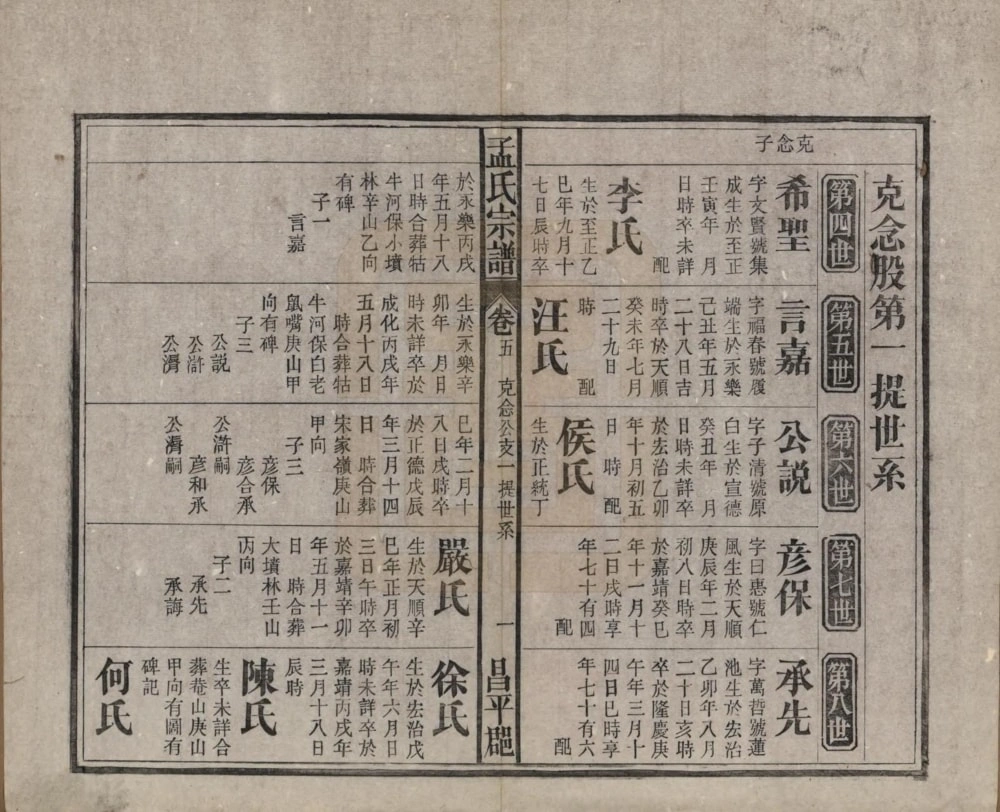 克念股第一提世系
第四世
第五世
第六世
第七世
第八世
克念子
希聖
字文賢號集
成生於至正
壬寅年　月
日時卒未詳
配
李氏
生於至正乙
巳年九月十
七日辰時卒
於永樂丙戌
年五月十八
日時合葬牯
牛河保小墳
林辛山乙向
有碑
子一
言嘉
言嘉
字福春號履
端生於永樂
己丑年五月
二十八日吉
時卒於天順
癸未年七月
二十九日
時　配
汪氏
生於永樂辛
卯年　月日
時未詳卒於
成化丙戌年
五月十八日
時合葬牯
牛河保白老
鼠嘴庚山甲
向有碑
子三
公説
公滸
公濟
公説
字子清號原
白生於宣德
癸丑年　月
日時未詳卒
於宏治乙卯
年十月初五
日　時　配
侯氏
生於正統丁
巳年二月十
八日戌時卒
於正德戊辰
年三月十四
日　時合葬
宋家嶺庚山
甲向
子三
彥保
彥合承
公滸嗣
彥和承
公濟嗣
彥保
字曰惠號仁
風生於天順
庚辰年二月
初八日時卒
於嘉靖癸巳
年十一月十
二日戌時享
年七十有四
配
嚴氏
生於天順辛
巳年正月初
三日午時卒
於嘉靖辛卯
年五月十一
日　時合葬
大墳林壬山
丙向
子二
承先
承誨
承先
字萬哲號蓮
池生於宏治
乙卯年八月
二十日亥時
卒於隆慶庚
午年三月十
四日巳時享
年七十有六
配
徐氏
生於宏治戊
午年六月日
時未詳卒於
嘉靖丙戌年
三月十八日
辰時
陳氏
生卒未詳合
葬菴山庚山
甲向有圖有
碑記
何氏
孟氏宗譜
卷五
克念公支一提世系
一
昌平郡